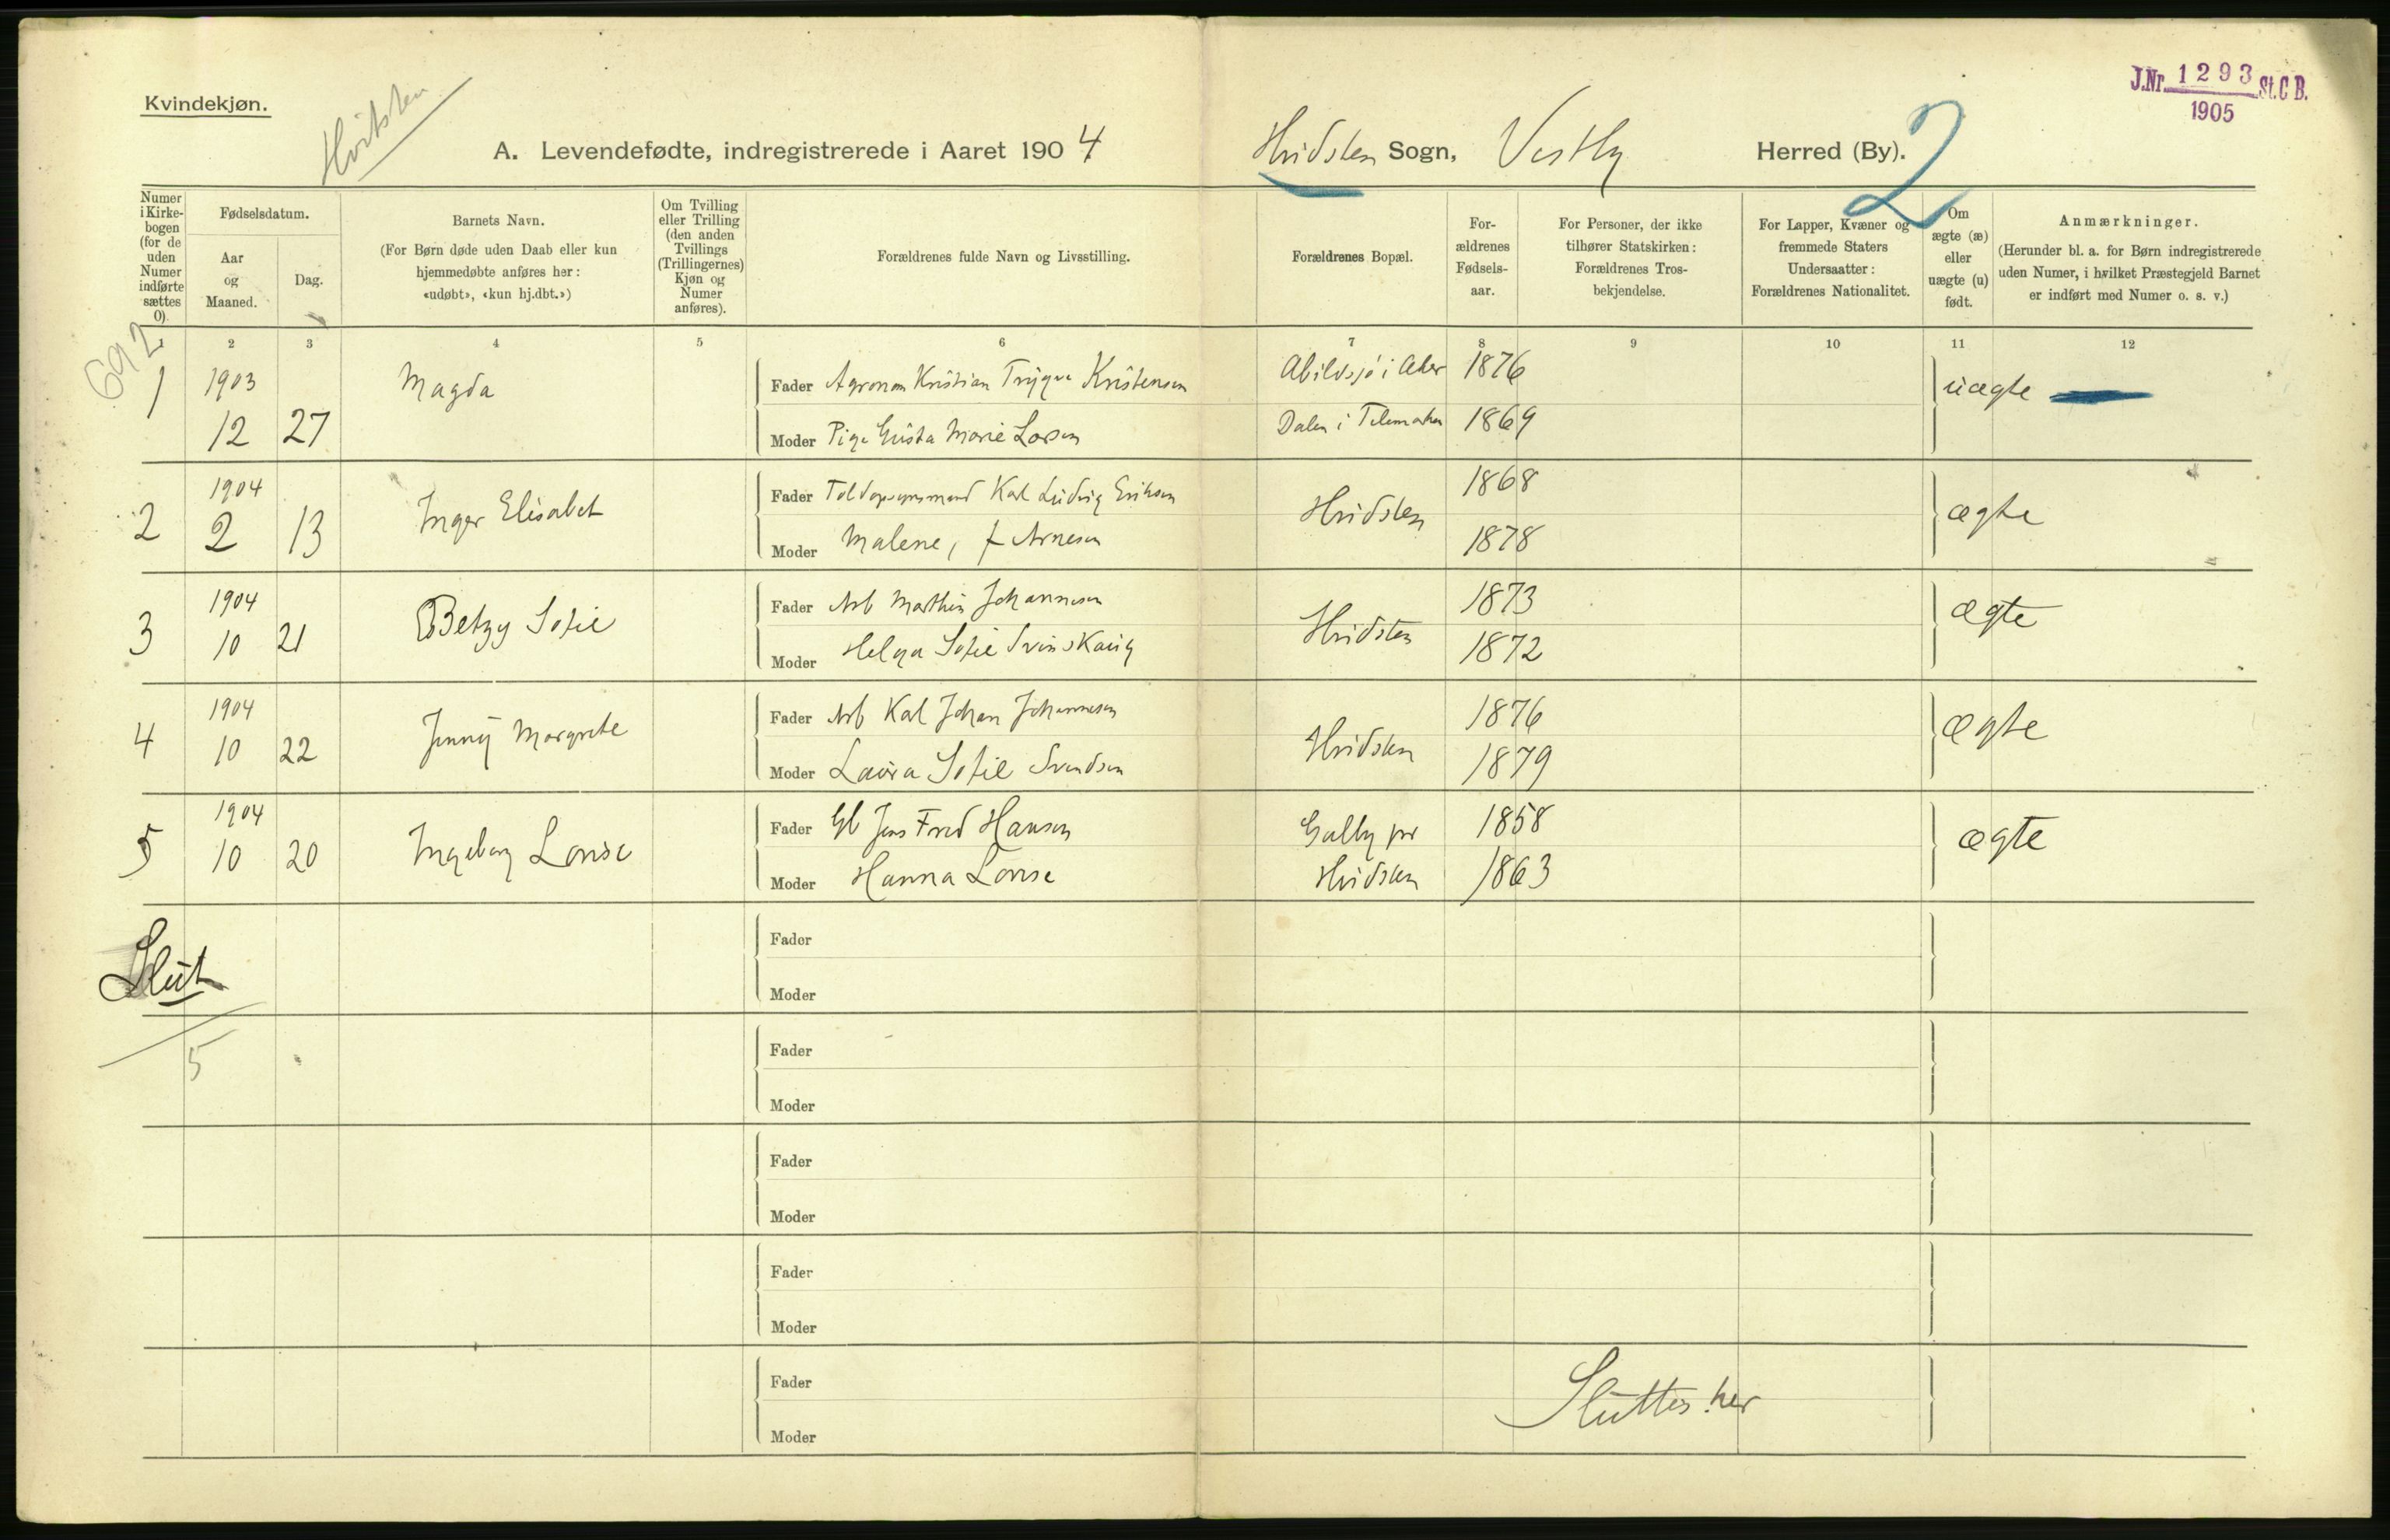 Kvindekjøn.
Hvitsten
J.Nr. 1293 St. C B.
1905
A. Levendefødte, indregistrerede i Aaret 1904
Hvidsten Sogn, Vestby Herred (By).
2
Numer i Kirkebogen (for de uden Numer indførte sættes 0).
Fødselsdatum.
Aar og Maaned.
Dag.
Barnets Navn.
(For Børn døde uden Daab eller kun
hjemmedøbte anføres her:
«udøbt», «kun hj.dbt.»)
Om Tvilling
eller Trilling
(den anden
Tvillings
(Trillingernes)
Kjøn og
Numer
anføres).
Forældrenes fulde Navn og Livsstilling.
Forældrenes Bopæl.
For-
ældrenes
Fødsels-
aar.
For Personer, der ikke
tilhører Statskirken:
Forældrenes Tros-
bekjendelse.
For Lapper, Kvæner og
fremmede Staters
Undersaatter:
Forældrenes Nationalitet.
Om
ægte (æ)
eller
uægte (u)
født.
Anmærkninger.
(Herunder bl. a. for Børn indregistrerede
uden Numer, i hvilket Præstegjeld Barnet
er indført med Numer o. s. v.)
1 2 3 4 5 6 7 8 9 10 11 12
692
1 1903 12 27 Magda
Fader Agronom Kristian Trygve Kristensen Abildsjø i Aker 1876 uægte
Moder Pige Gusta Marie Larsen Dalen i Telemarken 1869
2 1904 2 13 Inger Elisabet
Fader Toldopsynsmand Karl Ludvig Eriksen Hvidsten 1868 ægte
Moder Malene, f Arnesen 1878
3 1904 10 21 Betzy Sofie
Fader Arb Marthin Johannesen Hvidsten 1873 ægte
Moder Helga Sofie Svinskaug 1872
4 1904 10 22 Jenny Margrete
Fader Arb Karl Johan Johannesen Hvidsten 1876 ægte
Moder Laura Sofie Svendsen 1879
5 1904 10 20 Ingeborg Lovise
Fader Gb Jens Fred Hansen Galby pr 1858 ægte
Moder Hanna Lovise Hvidsten 1863
Slut
Fader
Moder
5
Fader
Moder
Fader
Moder
Fader
Moder
Fader
Sluttes her
Moder